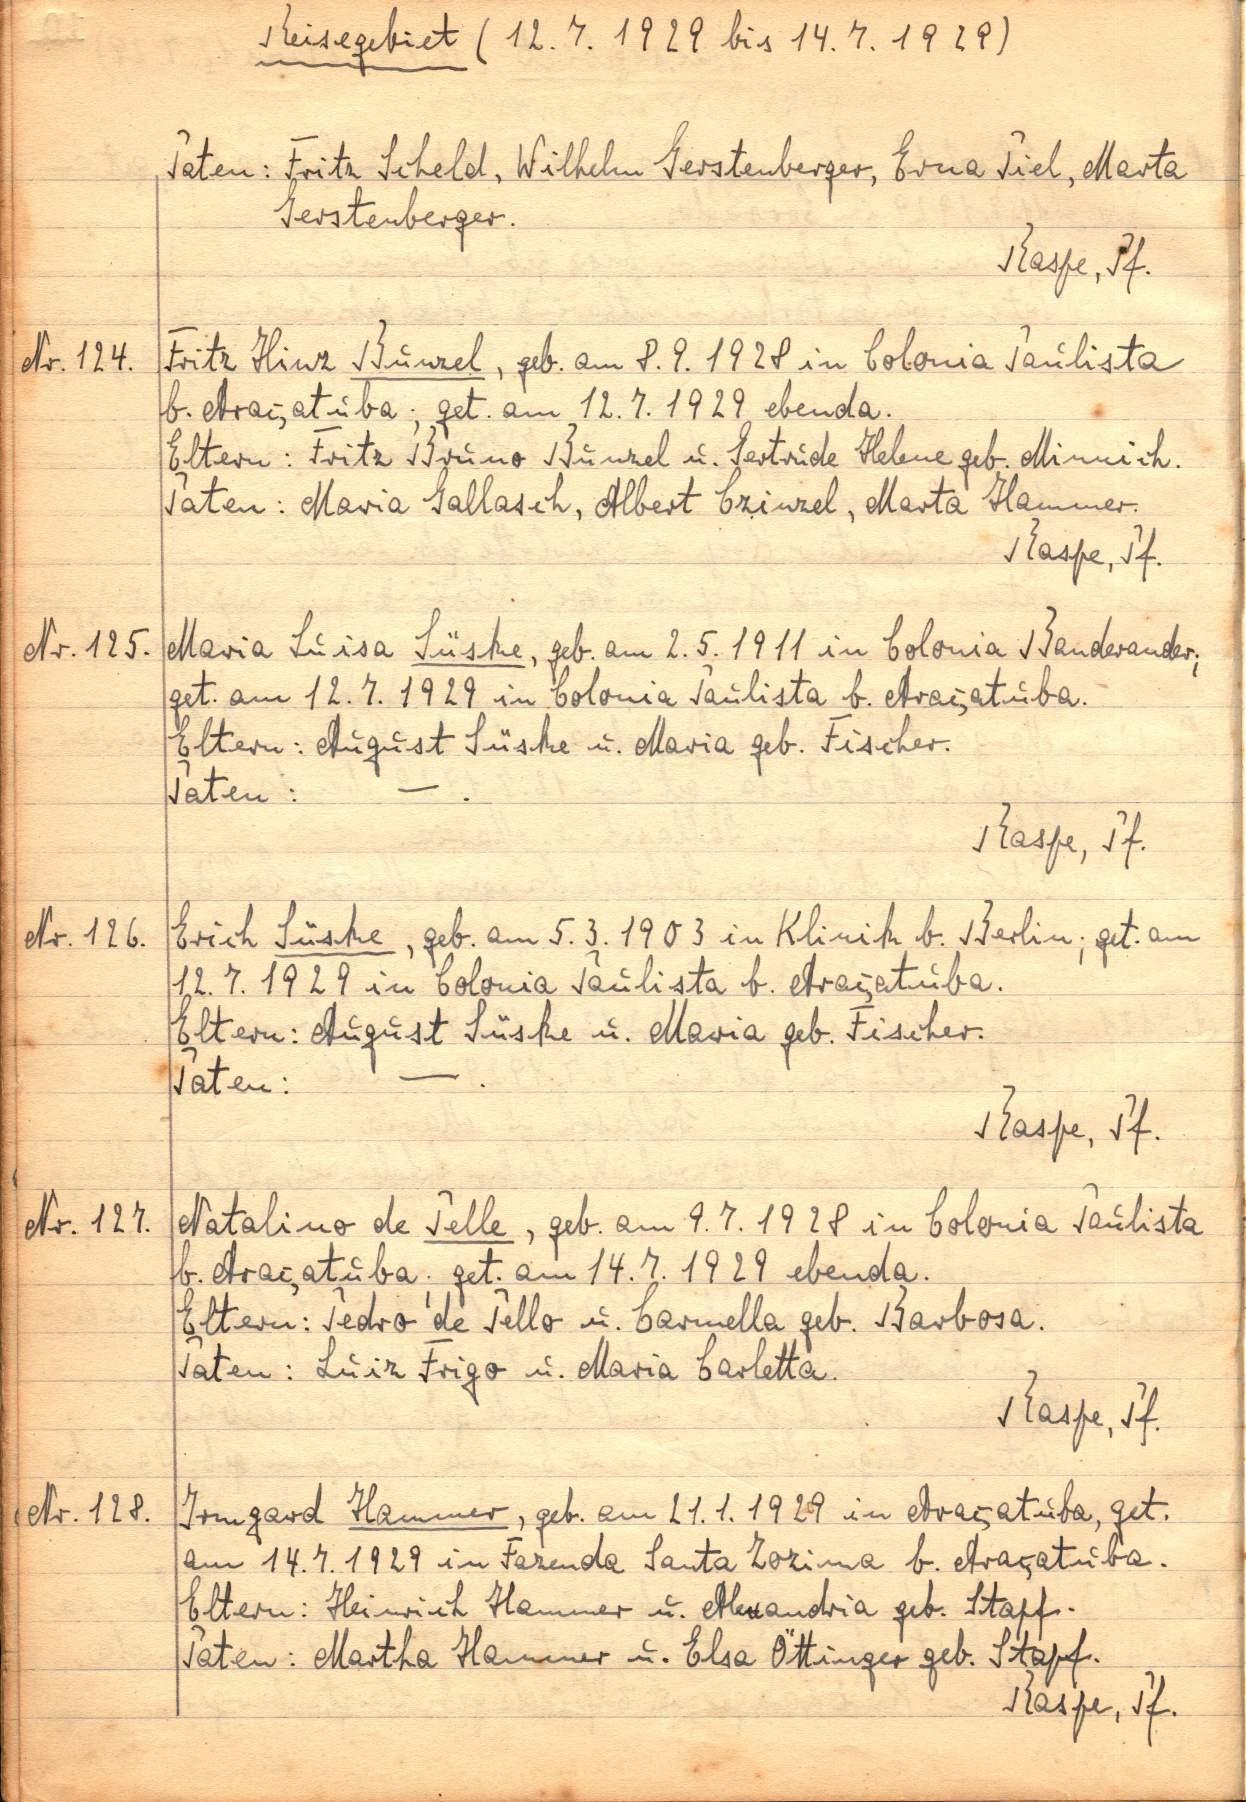 Reisegebiet (12.7.1929 bis 14.7.1929)
Paten: Fritz Scheld, Wilhelm Gerstenberger, Erna Piel, Marta
Gerstenberger.
Raspe, Pf.
Nr. 124. Fritz Hinz Bunzel, geb. am 8.9.1928 in Colonia Paulista
b. Araçatuba; get. am 12.7.1929 ebenda.
Eltern: Fritz Bruno Bunzel u. Gertrude Helene geb. Minnich.
Paten: Maria Gallasch, Albert Czinzel, Marta Hammer.
Raspe, Pf.
Nr. 125. Maria Luisa Lüske, geb. am 2.5.1911 in Colonia Banderander;
get. am 12.7.1929 in Colonia Paulista b. Araçatuba.
Eltern: August Lüske u. Maria geb. Fischer.
Paten: — .
Raspe, Pf.
Nr. 126. Erich Lüske, geb. am 5.3.1903 in Klinik b. Berlin; get. am
12.7.1929 in Colonia Paulista b. Araçatuba.
Eltern: August Lüske u. Maria geb. Fischer.
Paten: — .
Raspe, Pf.
Nr. 127. Natalino de Pelle, geb. am 9.7.1928 in Colonia Paulista
b. Araçatuba; get. am 14.7.1929 ebenda.
Eltern: Pedro de Pello u. Carmella geb. Barbosa.
Paten: Luiz Frigo u. Maria Carletta.
Raspe, Pf.
Nr. 128. Irmgard Hammer, geb. am 21.1.1929 in Araçatuba, get.
am 14.7.1929 in Fazenda Santa Zozima b. Araçatuba.
Eltern: Heinrich Hammer u. Alexandria geb. Stapf.
Paten: Martha Hammer u. Elsa Öttinger geb. Stapf.
Raspe, Pf.